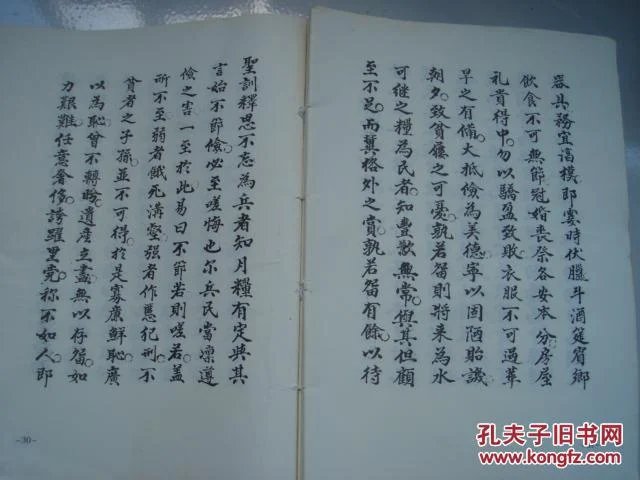 力艱難任意奢侈誇耀里党称不如人即
以為恥曾不轉盻遺産立盡無以存留如
貧者之子孫並不可得於是寡廉鮮恥靡
所不至弱者餓死溝壑强者作慝犯刑不
儉之害一至於此易曰不節若則嗟若蓋
言始不節儉必至嗟悔也尔兵民當凛遵
聖訓繹思不忘為兵者知月糧有定與其
至不足而冀格外之賞孰若留有餘以待
可继之糧為民者知豐歉無常與其但顧
朝夕致貧窶之可憂孰若留則将来為水
旱之有備大抵儉為美德寧以固陋貽譏
礼貴得中勿以驕盈致敗衣服不可過華
飲食不可無節冠婚喪祭各安本分房屋
器具務宜樸即歲時伏臘斗酒筵賓鄉
-30-
孔夫子旧书网
www.kongfz.com